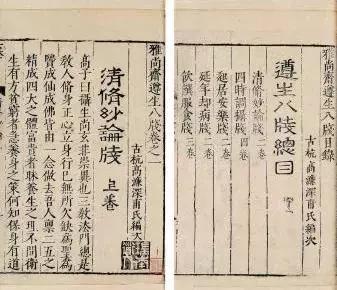 雅尚齋遵生八牋目錄
遵生八牋總目
古杭高濂深甫氏編次
清脩妙論牋 二卷
四時調攝牋 四卷
起居安樂牋 二卷
延年却病牋 二卷
飲饌服食牋 三卷
雅尚齋遵生八牋卷之一
古杭高濂深甫氏編次
清脩妙論牋 上卷
高子曰攝生尚玄非崇異也三教法門總是
教人脩身正心立身行己無所欠缺爲聖爲
賢成仙成佛皆由一念做去吾人禀二五之
精成四大之體富貴者昧養生之理不問衛
生有方貧窮者急養身之策何知保身有道